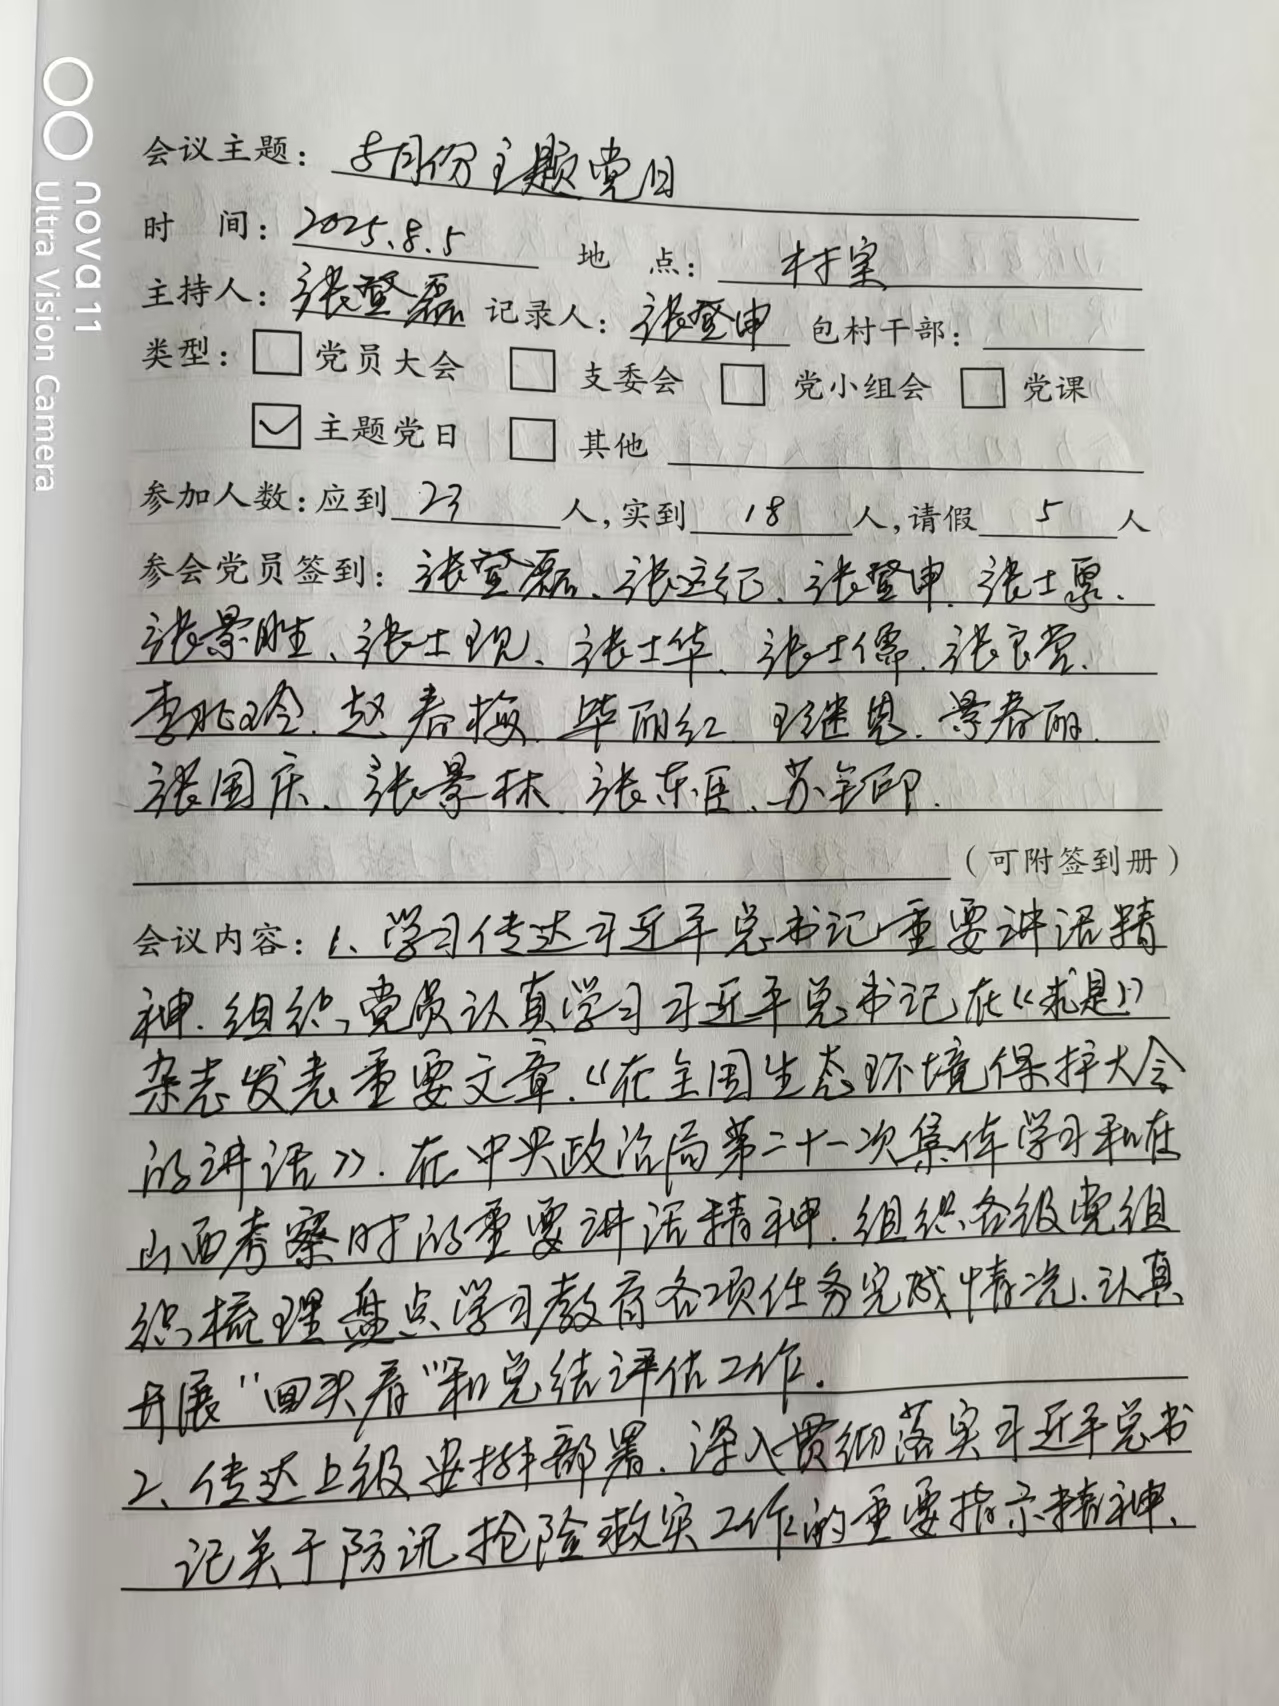 会议主题：8月份主题党日
时 间：2025.8.5 地 点：村室
主持人：张登磊 记录人：张登申 包村干部：
类型： 党员大会 支委会 党小组会 党课
主题党日 其他
参加人数：应到 23 人，实到 18 人，请假 5 人
参会党员签到：张登磊、张这纪、张登申、张士
张景胜、张士现、张士华、张士儒、张良堂、
李兆玲、赵春梅、毕丽红、王继恩、景春丽、
张国庆、张景林、张东臣、苏全印、
（可附签到册）
会议内容：1、学习传达习近平总书记重要讲话精
神、组织党员认真学习习近平总书记在《求是》
杂志发表重要文章、《在全国生态环境保护大会
的讲话》、在中央政治局第二十一次集体学习和在
山西考察时的重要讲话精神、组织各级党组
织梳理盘点学习教育各项任务完成情况、认真
开展“回头看”和总结评估工作.
2、传达上级安排部署、深入贯彻落实习近平总书
记关于防汛抢险救灾工作的重要指示精神、
nova 11
Ultra Vision Camera